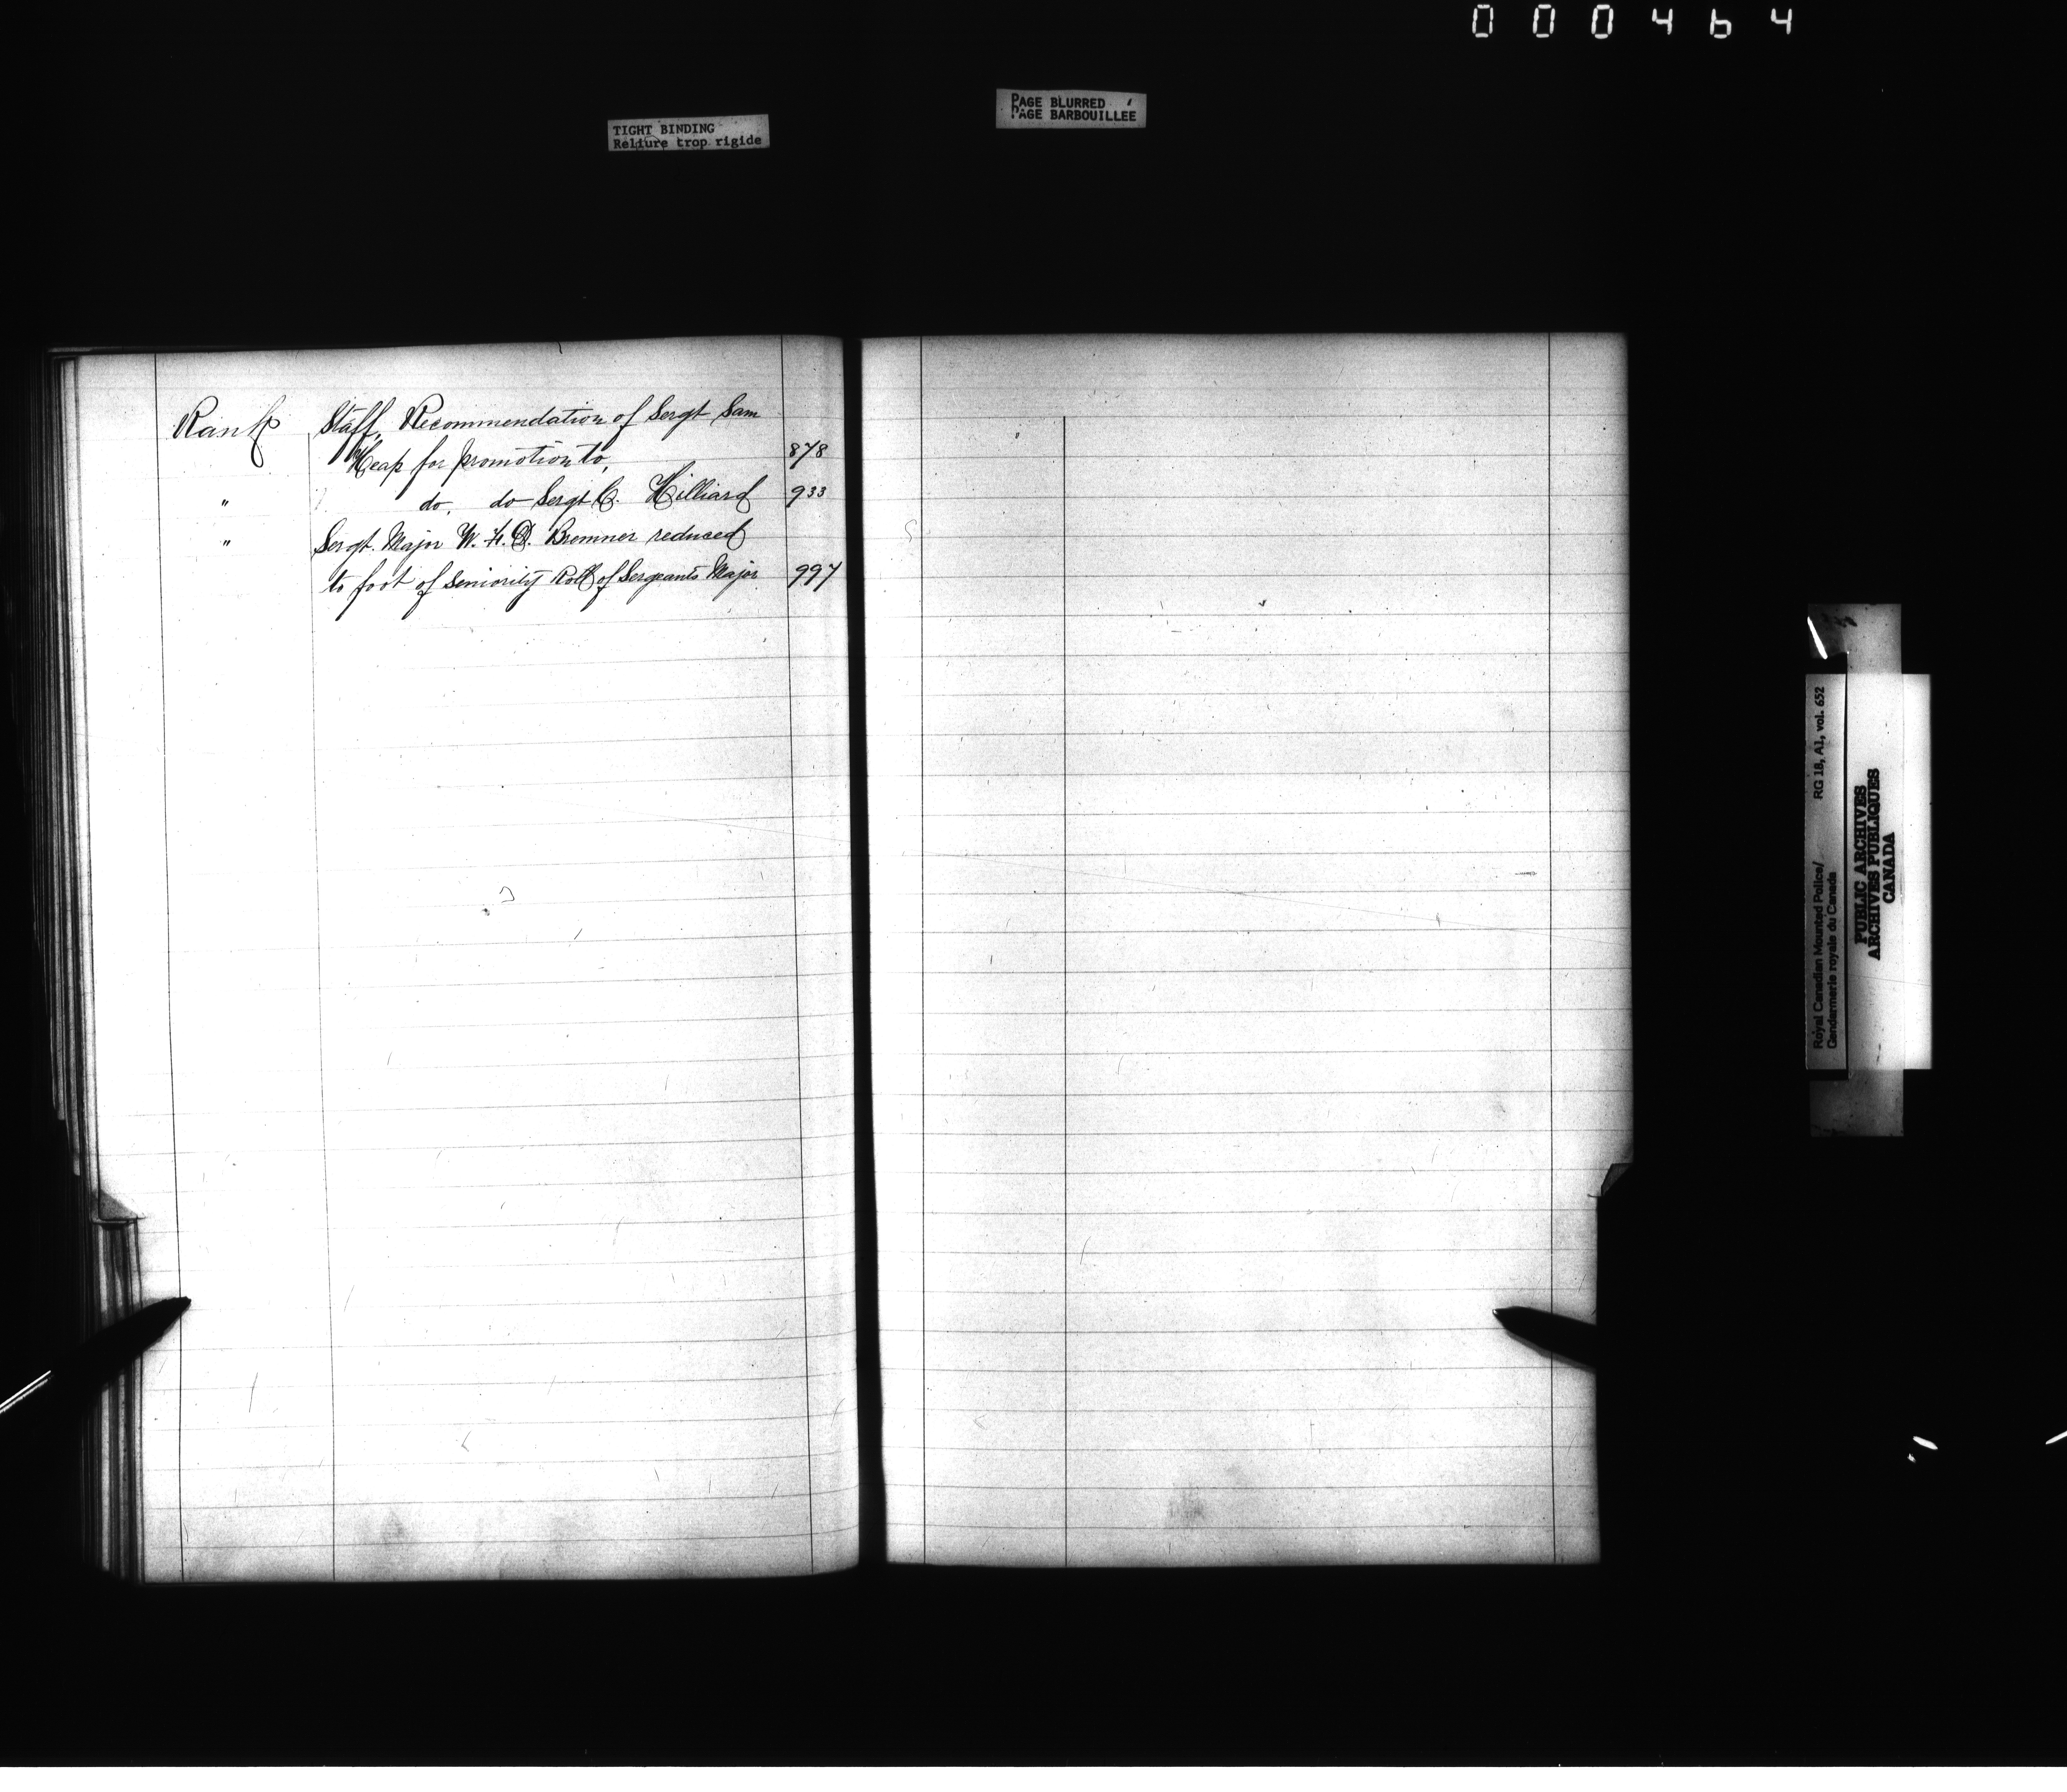 000464
TIGHT BINDING
Reliure trop rigide
PAGE BLURRED
PAGE BARBOUILLÉE
Rank Staff, Recommendation of Sergt Sam
Heap for promotion to, 878
" do. do Sergt C. Hilliard 933
" Sergt. Major W. F. D. Bremner reduced
to foot of Seniority Roll of Sergeants Major 997
Royal Canadian Mounted Police/ RG 18, A1, vol. 652
Gendarmerie royale du Canada
PUBLIC ARCHIVES
ARCHIVES PUBLIQUES
CANADA